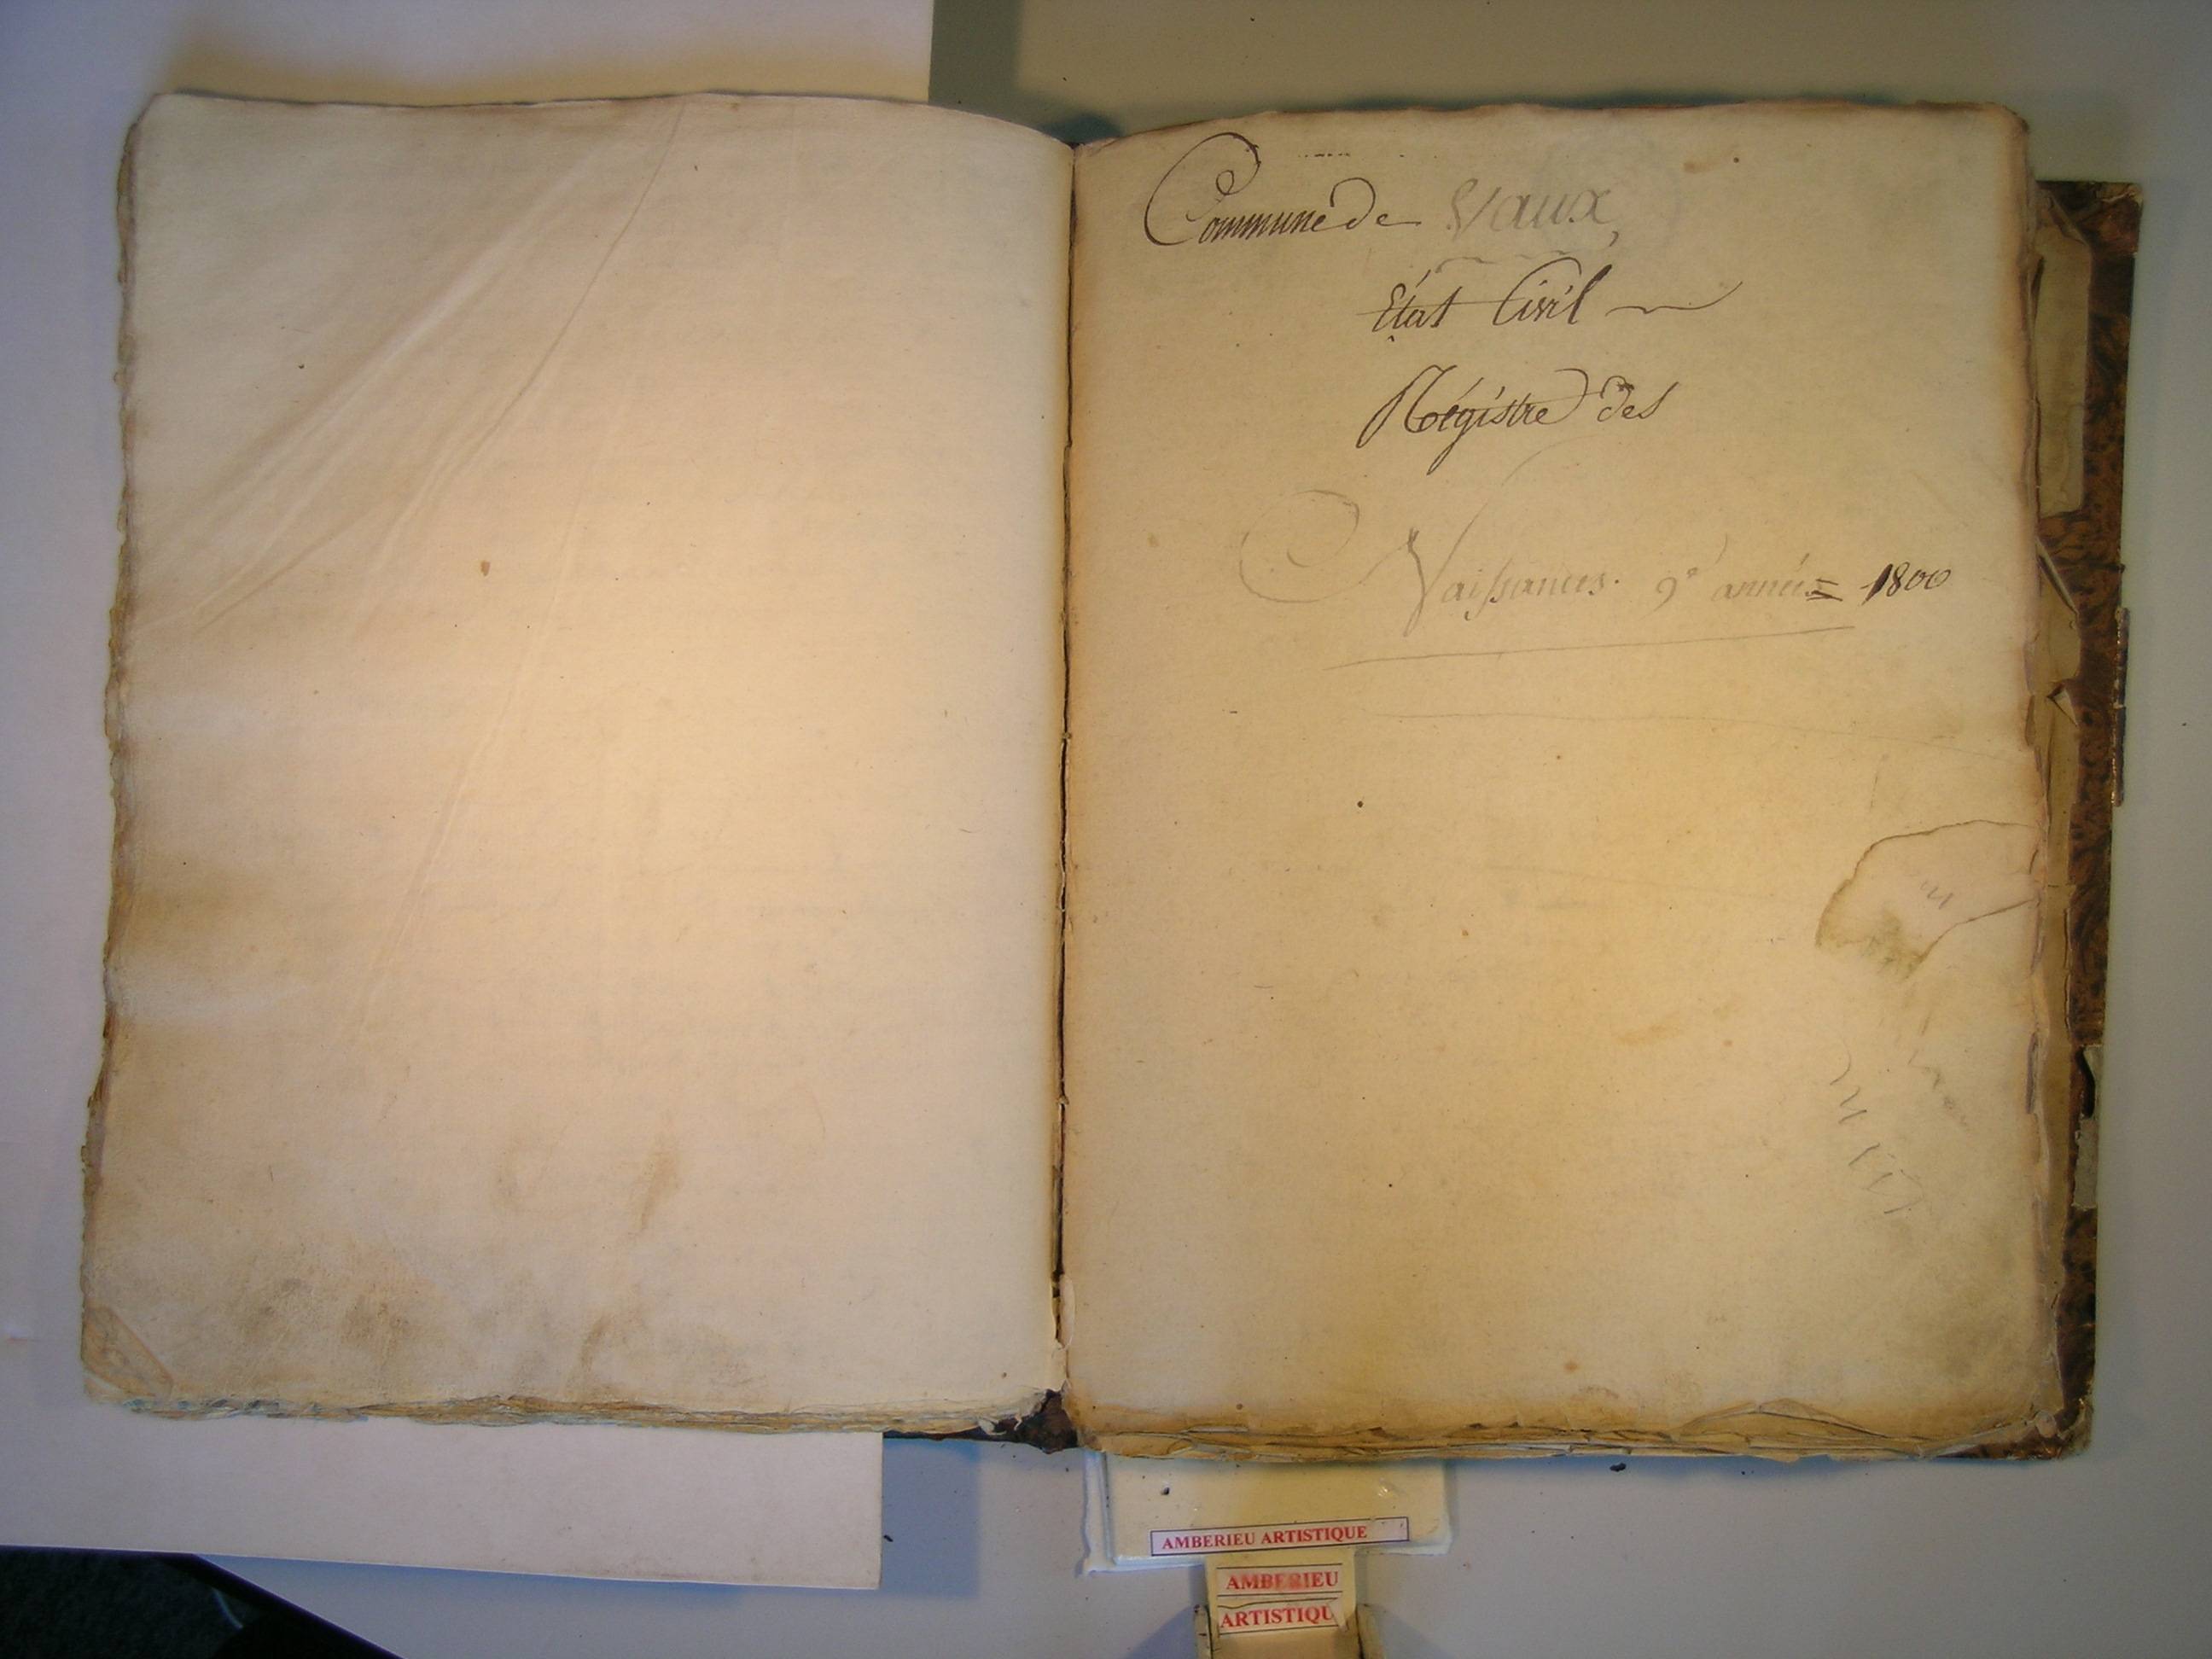 Commune de Vaux,
État Civil
Régistre des
Naissances. 9e année = 1800
AMBERIEU ARTISTIQUE
AMBERIEU
ARTISTIQU